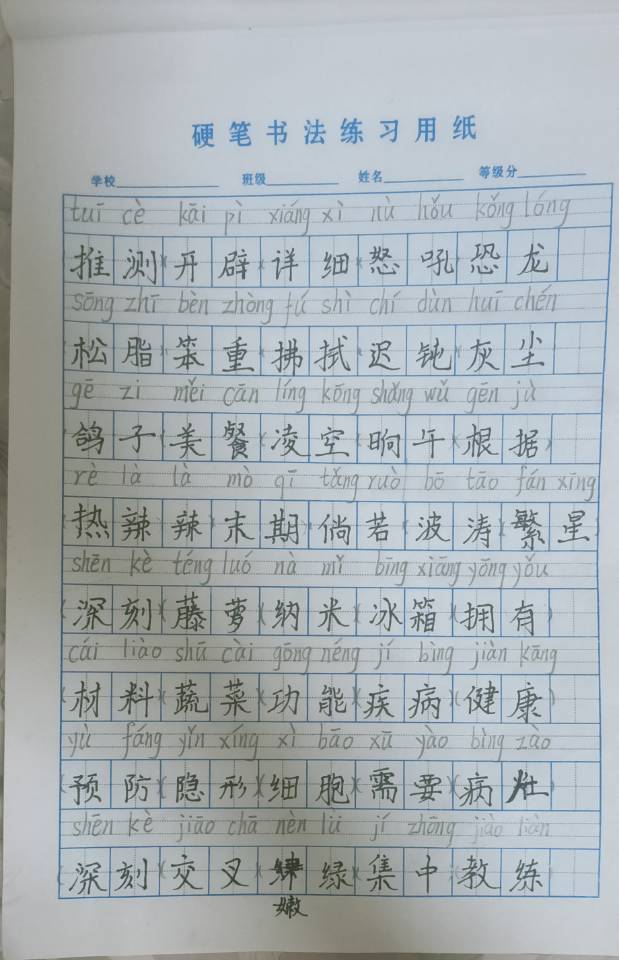 硬笔书法练习用纸
学校 班级 姓名 等级分
tuī cè kāi pì xiáng xì nù hǒu kǒng lóng
推测(开辟(详细(怒吼(恐龙
sōng zhī bèn zhòng fú shì chí dùn huī chén
松脂(笨重(拂拭(迟钝(灰尘
gē zi měi cān líng kōng shǎng wǔ gēn jù
鸽子(美餐(凌空(晌午(根据)
rè là là mò qī tǎng ruò bō tāo fán xīng
(热辣辣(末期(倘若(波涛(繁星)
shēn kè téng luó nà mǐ bīng xiāng yōng yǒu
(深刻(藤萝(纳米(冰箱(拥有)
cái liào shū cài gōng néng jí bìng jiàn kāng
(材料(蔬菜(功能(疾病(健康)
yù fáng yǐn xíng xì bāo xū yào bìng zào
(预防(隐形(细胞(需要(病灶
shēn kè jiāo chā nèn lǜ jí zhōng jiào liàn
(深刻(交叉(绿(集中(教练)
嫩